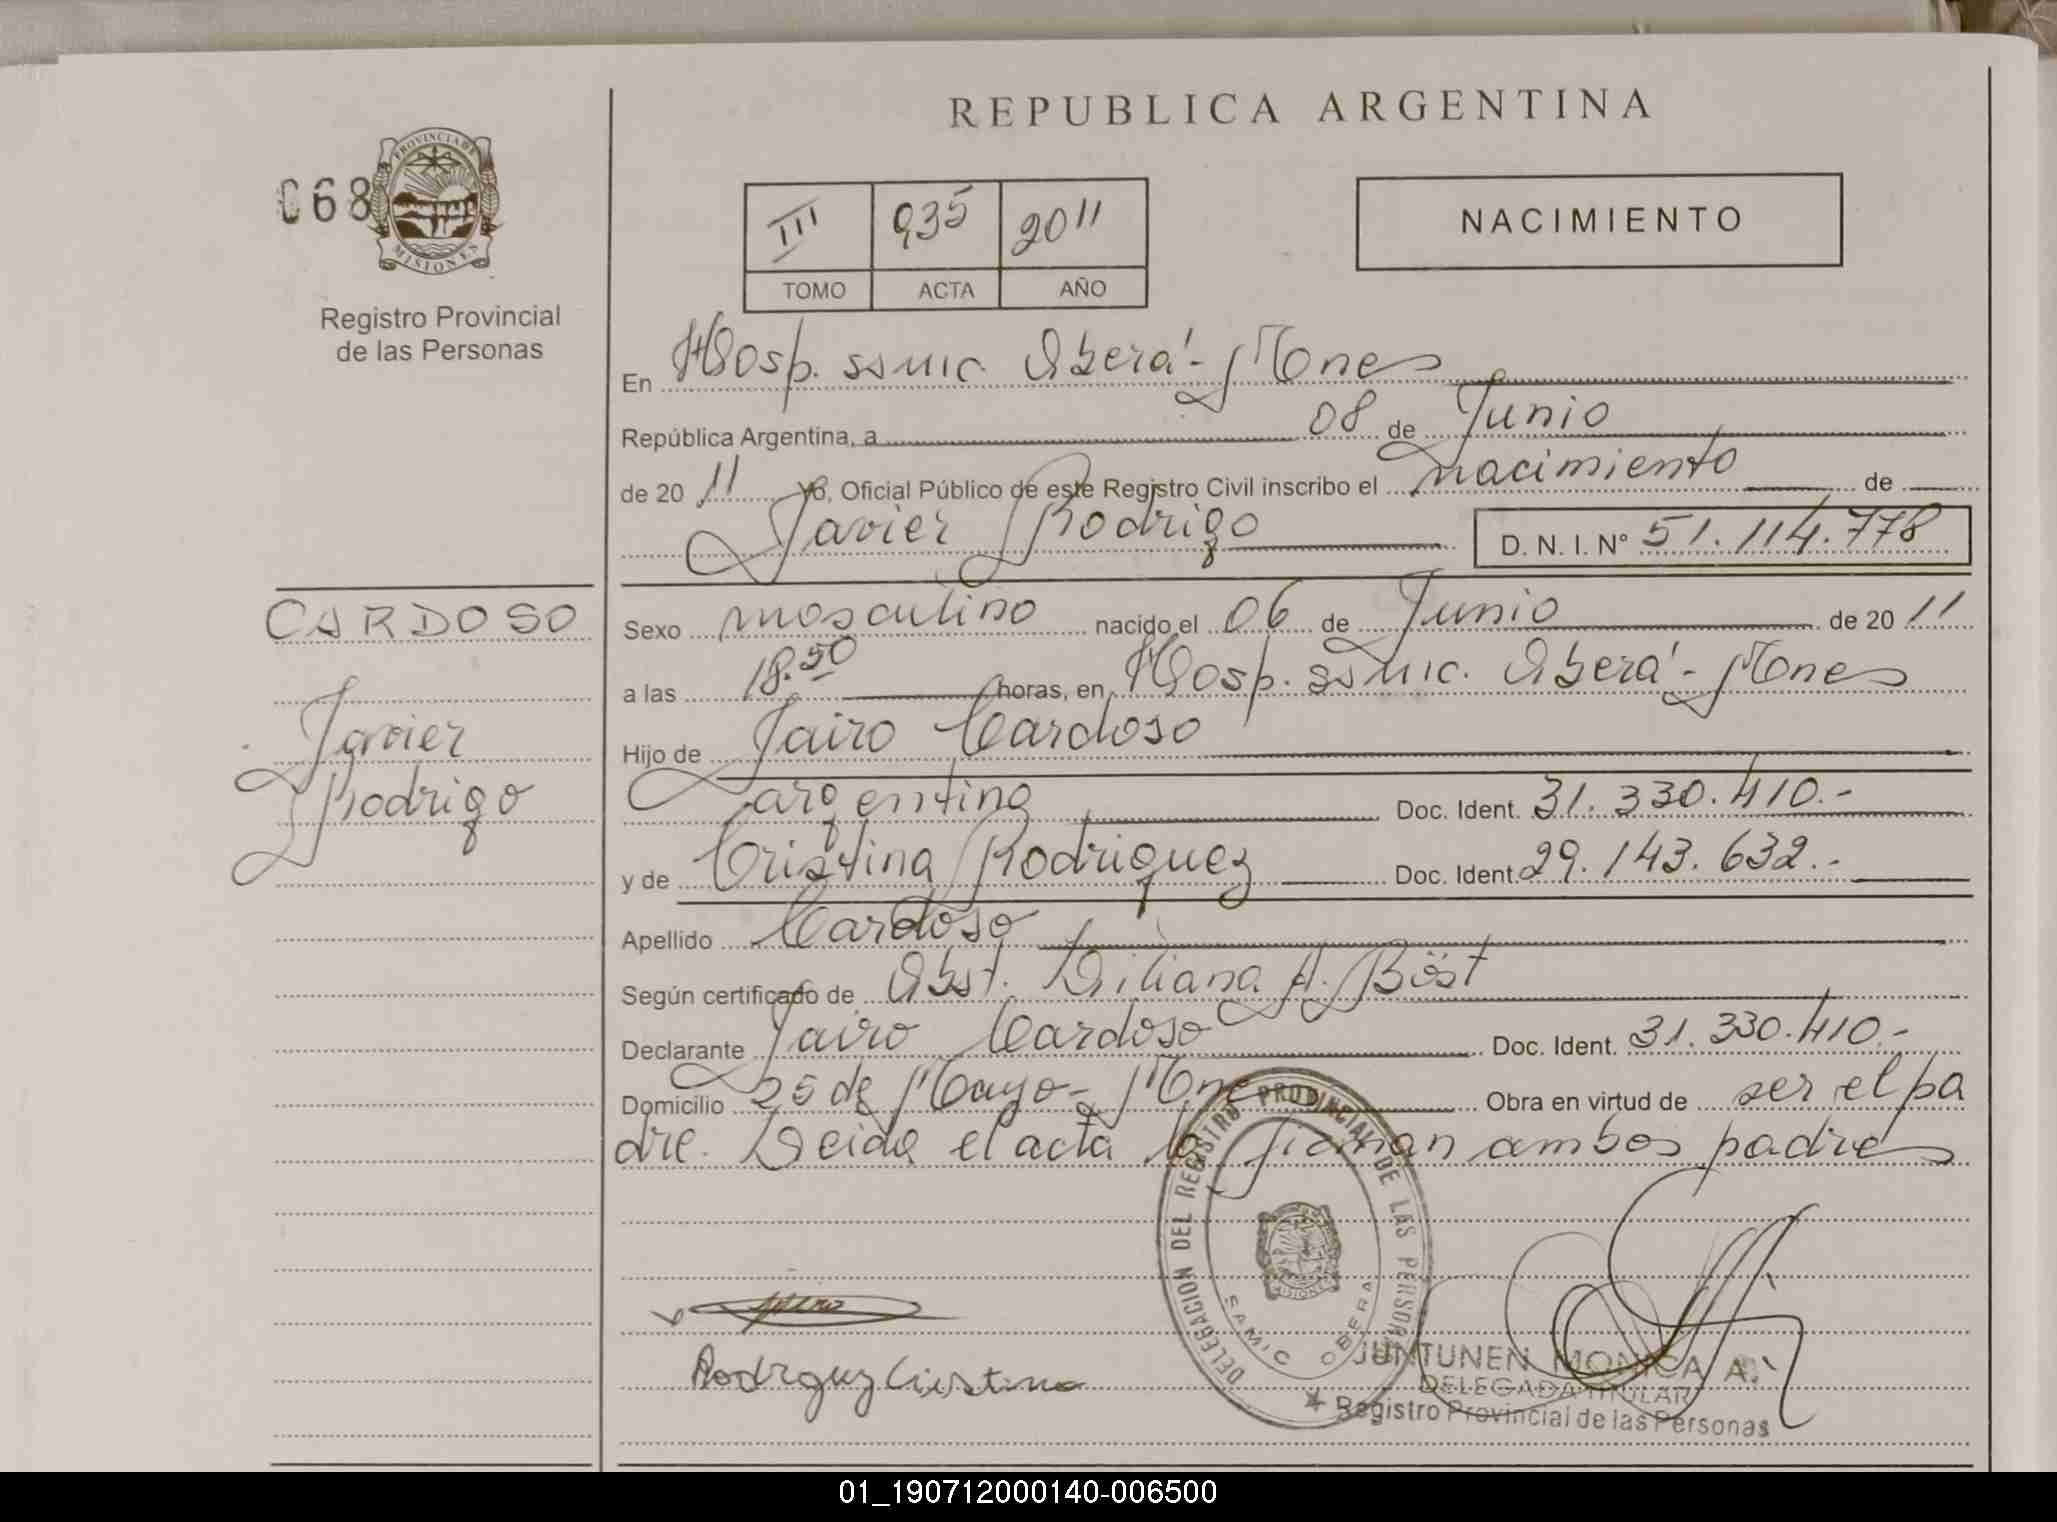 REPUBLICA ARGENTINA
068
PROVINCIA DE
MISIONES
Registro Provincial
de las Personas
III 935 2011
TOMO ACTA AÑO
NACIMIENTO
En Hosp. ssmic. Oberá - Mnes
República Argentina, a 08 de Junio
de 20 11 yo, Oficial Público de este Registro Civil inscribo el nacimiento de
Javier Rodrigo D. N. I. Nº 51.114.778
CARDOSO
Javier
Rodrigo
Sexo masculino nacido el 06 de Junio de 20 11
a las 18.50 horas, en Hosp. ssmic. Oberá - Mnes
Hijo de Jairo Cardoso
argentino Doc. Ident. 31.330.410.-
y de Cristina Rodriguez Doc. Ident. 29.143.632.-
Apellido Cardoso
Según certificado de Obst. Liliana A. Böst
Declarante Jairo Cardoso Doc. Ident. 31.330.410.-
Domicilio 25 de Mayo - Mnes Obra en virtud de ser el pa
dre. Leida el acta la firman ambos padres
DELEGACION DEL REGISTRO PROVINCIAL DE LAS PERSONAS
SAMIC OBERA
Rodriguez Cristina
JUNTUNEN MONICA A.
DELEGADA TITULAR
Registro Provincial de las Personas
01_190712000140-006500